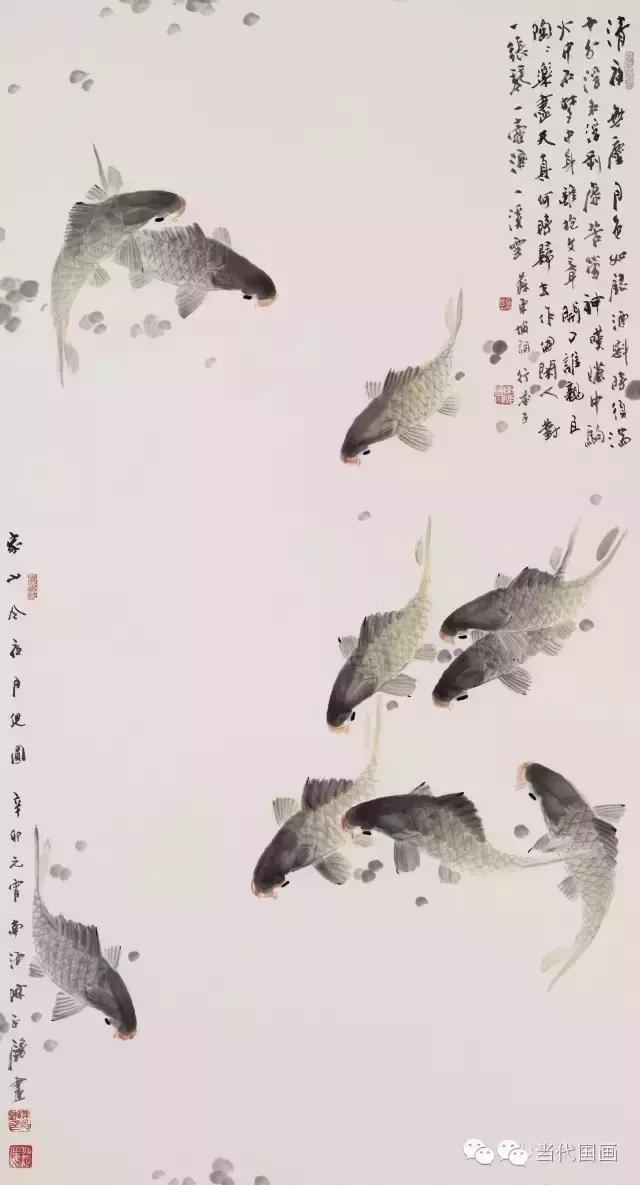 清夜無塵月色如銀酒斟時須滿
十分浮名浮利虛苦勞神嘆隙中駒
火中石夢中身雖抱文章開口誰親且
陶〻樂盡天真何時歸去作個閑人對
一張琴一壺酒一溪雲 蘇東坡詞行香子
家山今夜月圓 辛卯元宵 畫
当代国画